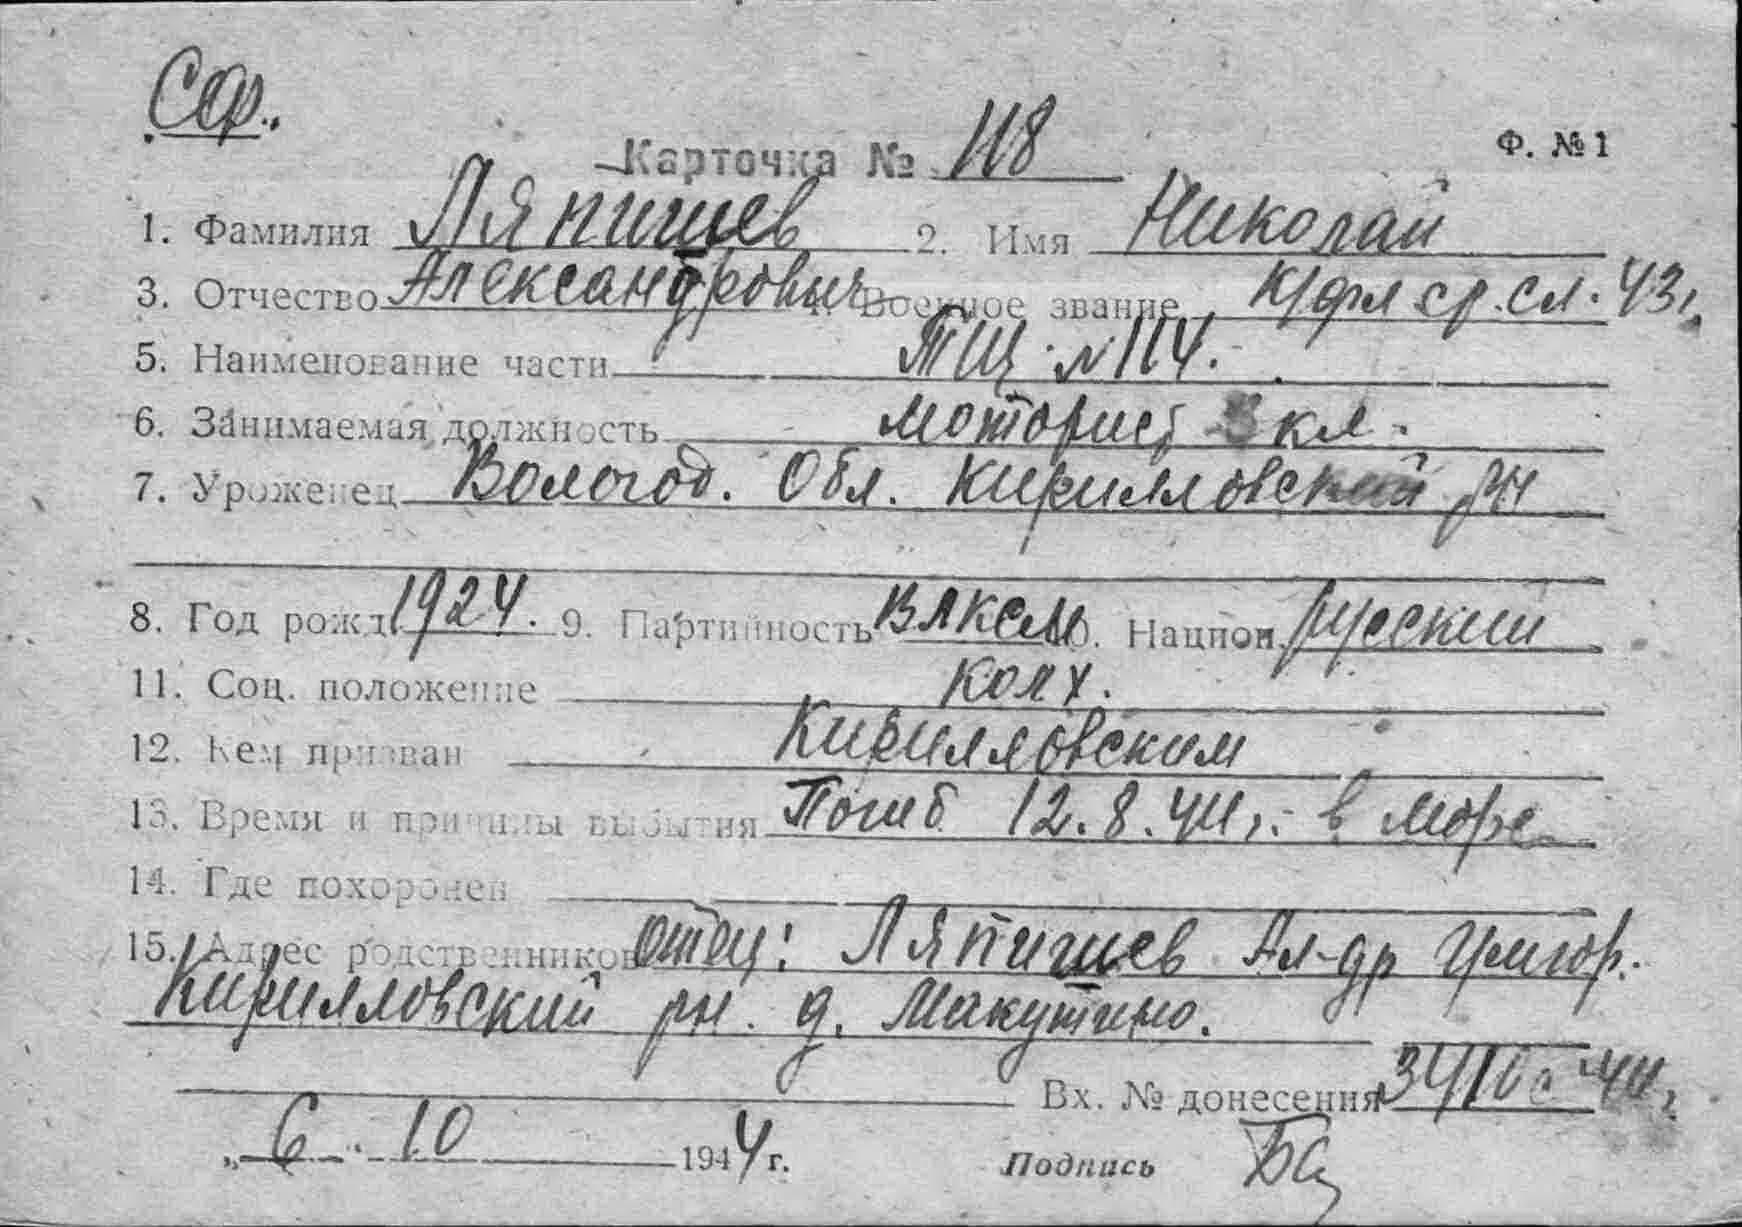 Сф.
Карточка № 118 Ф. № 1
1. Фамилия Ляпишев 2. Имя Николай
3. Отчество Александрович 4. Военное звание к/фл ср. сл. 43г.
5. Наименование части ТЩ № 114.
6. Занимаемая должность моторист 3 кл.
7. Уроженец Вологод. Обл. Кирилловский рн
8. Год рожд. 1924. 9. Партийность ВЛКСМ 10. Национ. русский
11. Соц. положение колх.
12. Кем призван Кирилловским
13. Время и причины выбытия Погиб 12.8.44г. в море
14. Где похоронен
15. Адрес родственников отец: Ляпишев Ал-др Григор.
Кирилловский рн. д. Макутино.
Вх. № донесения 44г.
„ 6 “ 10 1944 г. Подпись